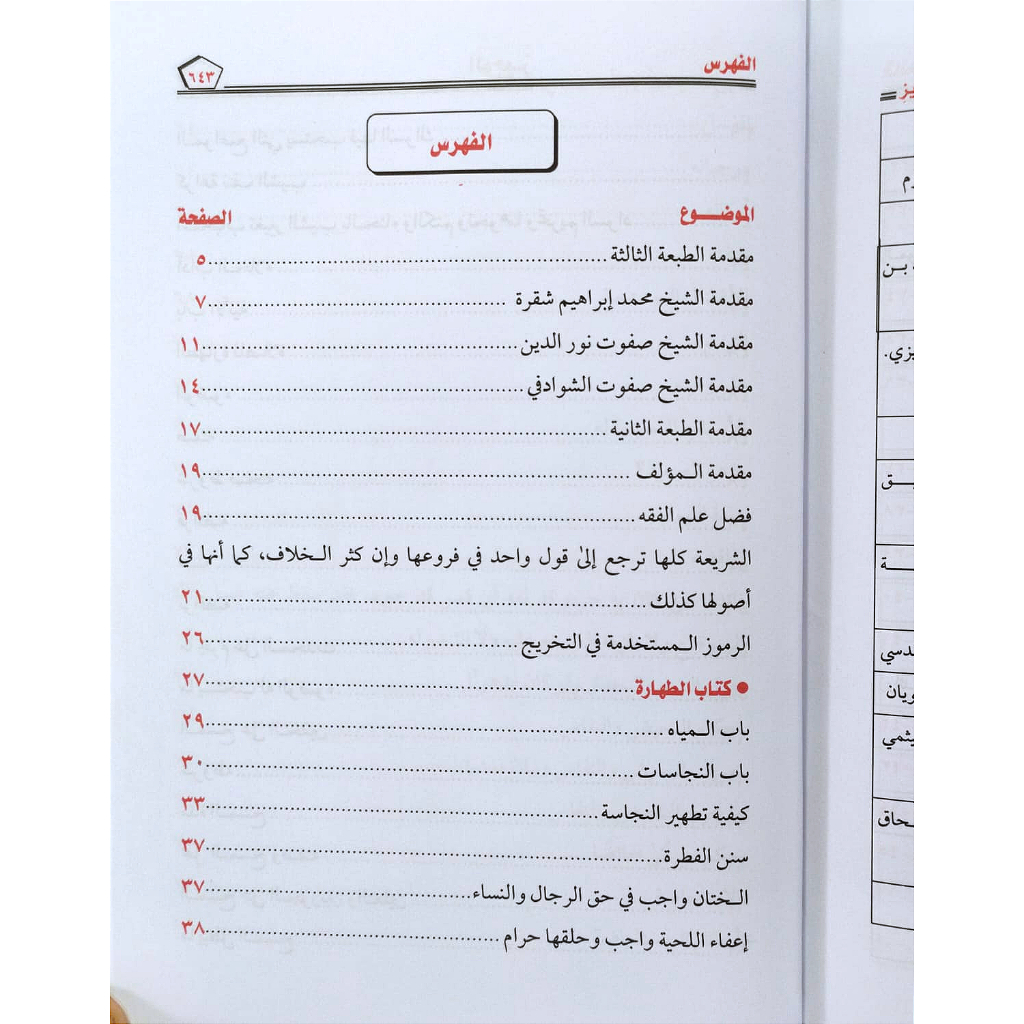 الفهرس ٦٤٣
الفهرس
الموضـــوع الصفحة
مقدمة الطبعة الثالثة ٥
مقدمة الشيخ محمد إبراهيم شقرة ٧
مقدمة الشيخ صفوت نور الدين ١١
مقدمة الشيخ صفوت الشوادفي ١٤
مقدمة الطبعة الثانية ١٧
مقدمة الـمؤلف ١٩
فضل علم الفقه ١٩
الشريعة كلها ترجع إلىٰ قول واحد في فروعها وإن كثر الـخلاف، كما أنها في
أصولها كذلك ٢١
الرموز الـمستخدمة في التخريج ٢٦
● كتاب الطهارة ٢٧
باب الـمياه ٢٩
باب النجاسات ٣٠
كيفية تطهير النجاسة ٣٣
سنن الفطرة ٣٧
الـختان واجب في حق الرجال والنساء ٣٧
إعفاء اللحية واجب وحلقها حرام ٣٨